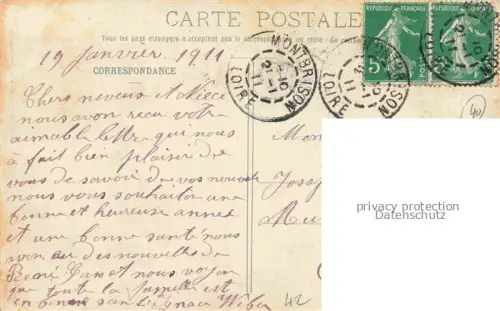 CARTE POSTALE
Tous les pays étrangers n'acceptent pas la correspondance au recto
19 Janvier 1911
CORRESPONDANCE
Chers neveux et Nièce
nous avon recu votre
aimable lettre qui nous
a fait bien plaisir de
vous de savoir de vos nouvele
nous vous souhaiton une
bonne et heureuse annee
et une bonne santé nous
avon eu des nouvelles de
René et nous voyon
que toute la famille est
en bonne santé
REPUBLIQUE FRANÇAISE
REPUBLIQUE FRANÇAISE
5
MONTBRISON
LOIRE
21 -1
11
MONTBRISON
LOIRE
11
Mon
Josep
40
privacy protection
Datenschutz
42